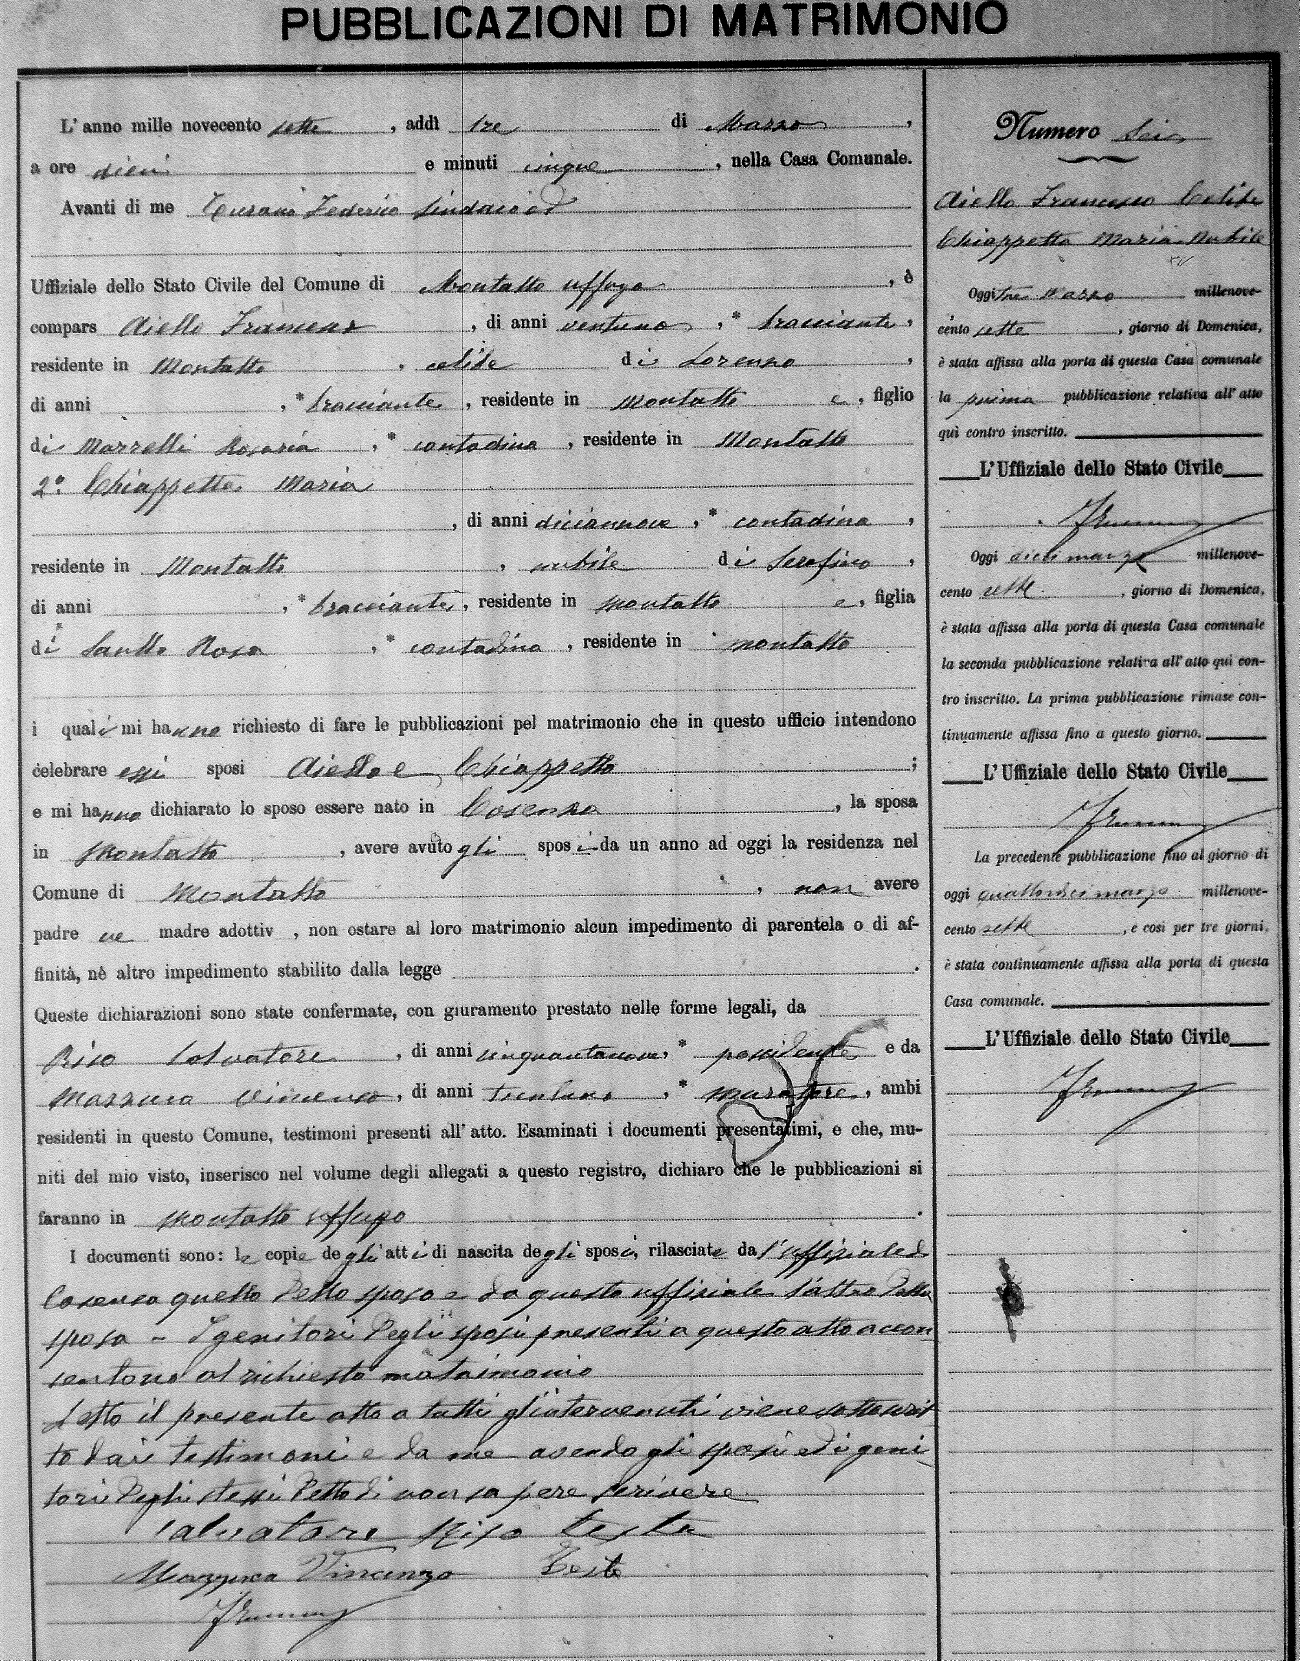 PUBBLICAZIONI DI MATRIMONIO
L'anno mille novecento sette, addì tre di Marzo,
a ore dieci e minuti cinque, nella Casa Comunale.
Avanti di me Turano Federico Sindaco
Uffiziale dello Stato Civile del Comune di Montalto Uffugo, è
compars Aiello Francesco, di anni ventuno, * bracciante,
residente in Montalto, celibe di Lorenzo,
di anni , * bracciante, residente in Montalto e, figlio
di Marrelli Rosaria, * contadina, residente in Montalto
2° Chiappetta Maria
, di anni diciannove, * contadina,
residente in Montalto, nubile di Serafino,
di anni , * bracciante, residente in Montalto e, figlia
di Rosa, * contadina, residente in Montalto
i quali mi hanno richiesto di fare le pubblicazioni pel matrimonio che in questo ufficio intendono
celebrare essi sposi Aiello e Chiappetta;
e mi hanno dichiarato lo sposo essere nato in Cosenza, la sposa
in Montalto, avere avuto gli sposi da un anno ad oggi la residenza nel
Comune di Montalto, non avere
padre ne madre adottiv , non ostare al loro matrimonio alcun impedimento di parentela o di af-
finità, nè altro impedimento stabilito dalla legge .
Queste dichiarazioni sono state confermate, con giuramento prestato nelle forme legali, da
Riso Salvatore, di anni cinquantanove, * possidente e da
Mazzuca Vincenzo, di anni trentuno, * muratore, ambi
residenti in questo Comune, testimoni presenti all'atto. Esaminati i documenti presentatimi, e che, mu-
niti del mio visto, inserisco nel volume degli allegati a questo registro, dichiaro che le pubblicazioni si
faranno in Montalto Uffugo.
I documenti sono: le copie degli atti di nascita degli sposi, rilasciate da l'uffiziale di
Cosenza quello dello sposo e da questo uffiziale l'altro della
sposa - I genitori degli sposi presenti a questo atto accon
sentono al richiesto matrimonio
Letto il presente atto a tutti gl'intervenuti viene sottoscrit
to dai testimoni e da me avendo gli sposi ed i geni
tori degli stessi detto di non sapere scrivere
Salvatore Riso teste
Mazzuca Vincenzo Teste
Numero Sei
Aiello Francesco Celibe
Chiappetta Maria Nubile
Oggi tre Marzo millenove-
cento sette, giorno di Domenica,
è stata affissa alla porta di questa Casa comunale
la prima pubblicazione relativa all'atto
quì contro inscritto.
L'Uffiziale dello Stato Civile
Oggi dieci marzo millenove-
cento sette, giorno di Domenica,
è stata affissa alla porta di questa Casa comunale
la seconda pubblicazione relativa all'atto qui con-
tro inscritto. La prima pubblicazione rimase con-
tinuamente affissa fino a questo giorno.
L'Uffiziale dello Stato Civile
La precedente pubblicazione fino al giorno di
oggi quattordici marzo millenove-
cento sette, e così per tre giorni,
è stata continuamente affissa alla porta di questa
Casa comunale.
L'Uffiziale dello Stato Civile